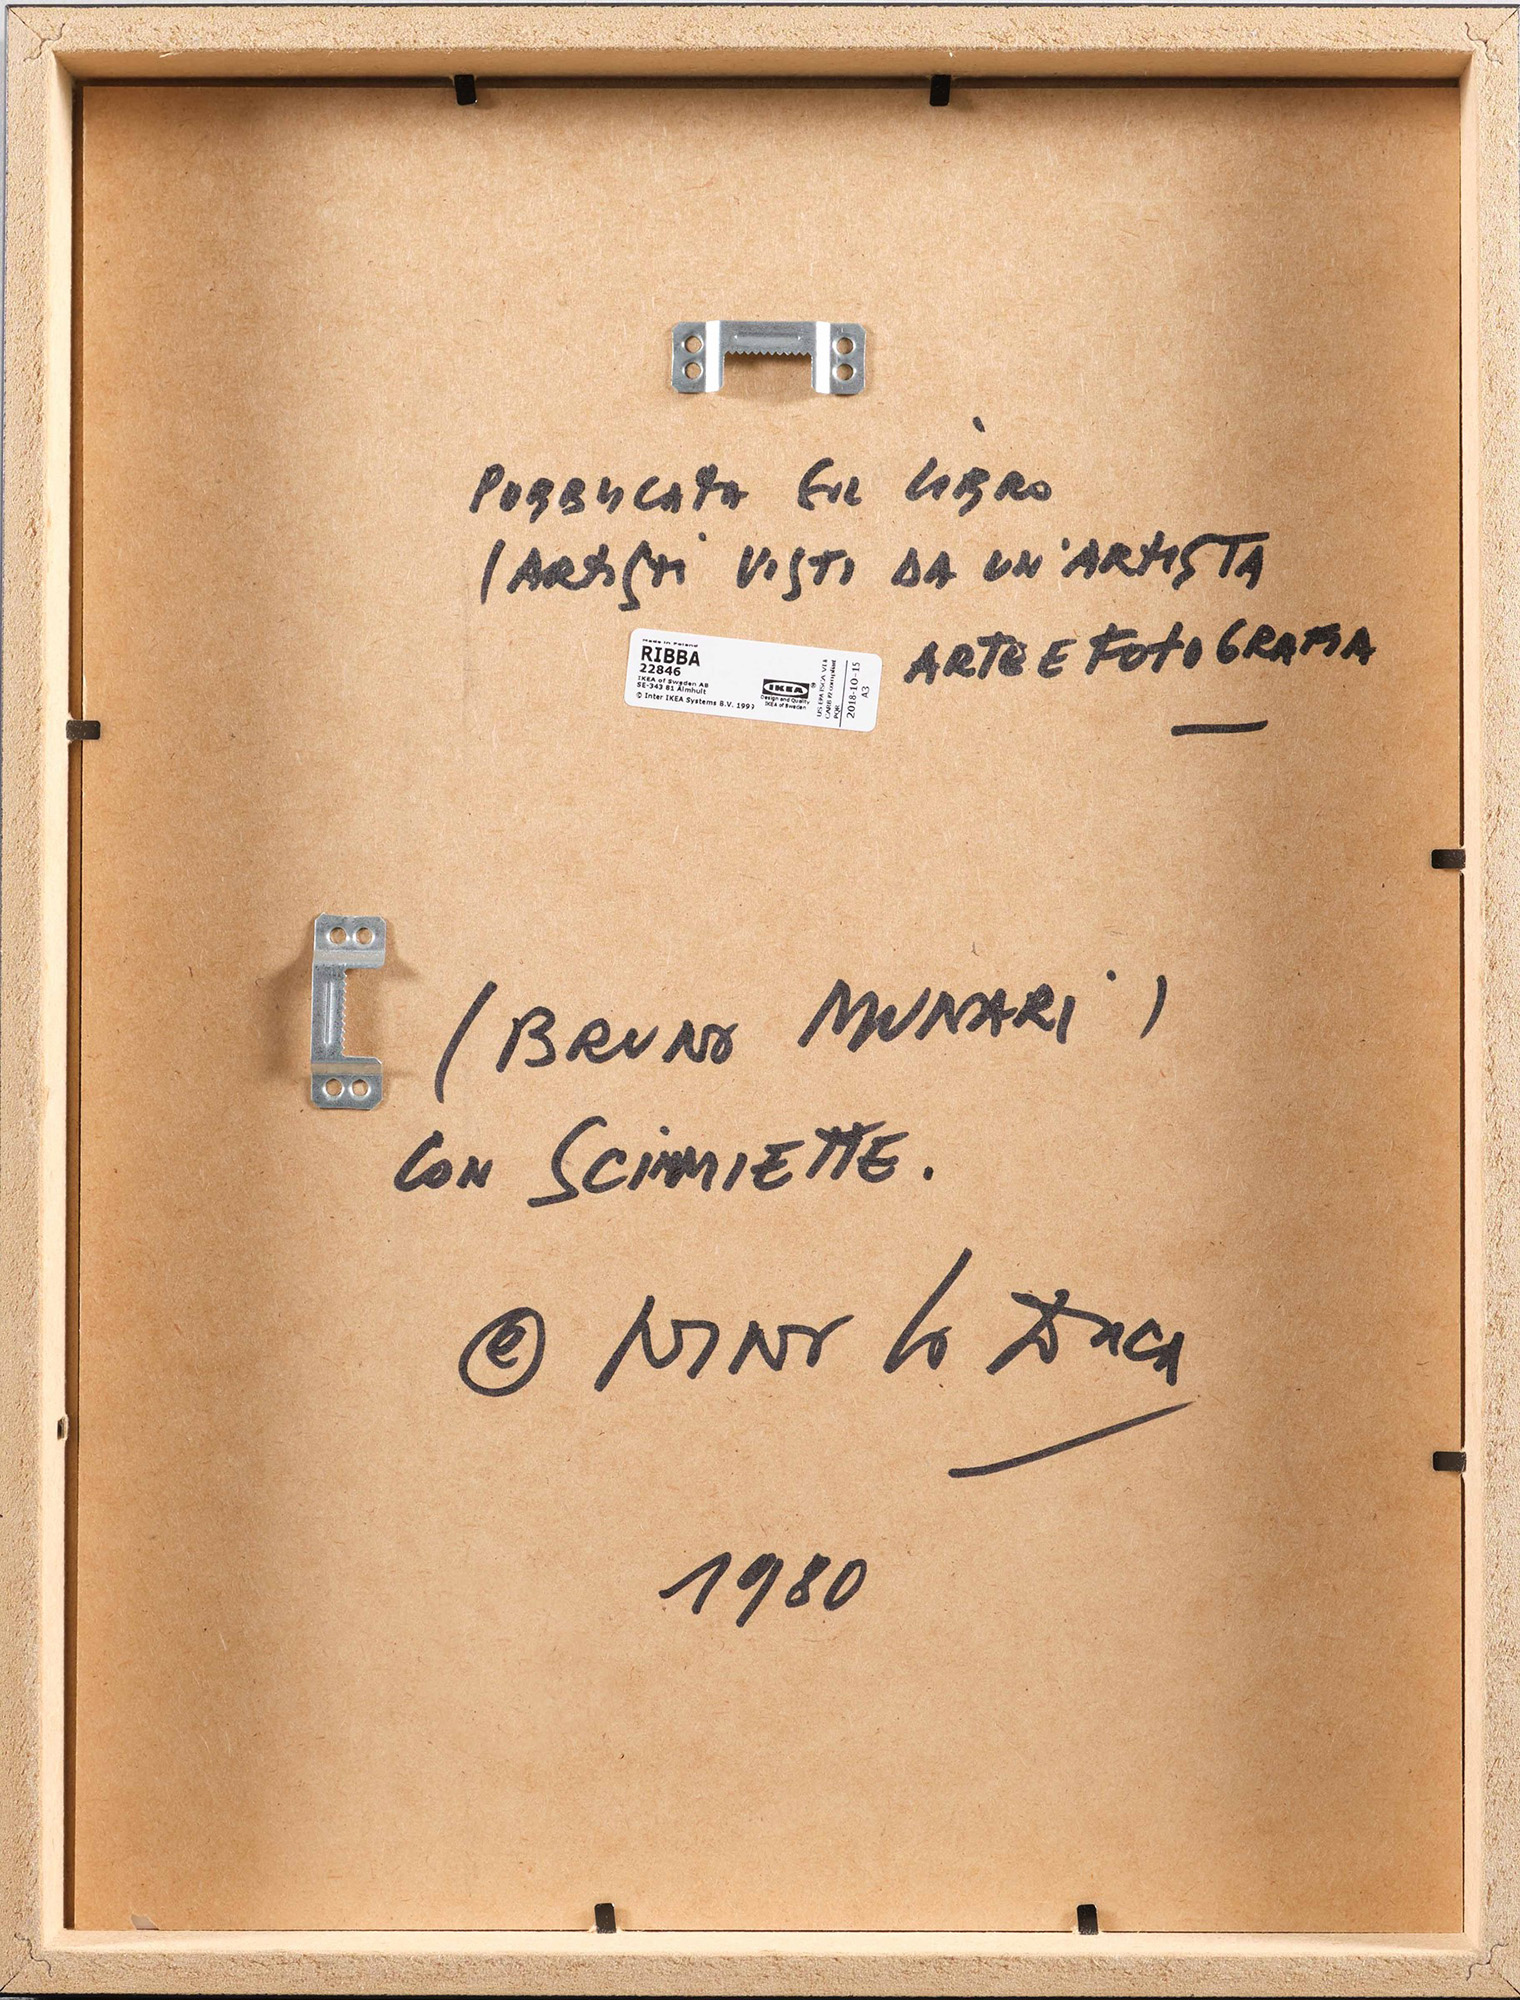 PUBBLICATA SUL LIBRO
(ARTISTI VISTI DA UN'ARTISTA
ARTE E FOTOGRAFIA
Made in Poland
RIBBA
22846
IKEA of Sweden AB
SE-343 81 Älmhult
© Inter IKEA Systems B.V. 1999
IKEA ®
Design and Quality
IKEA of Sweden
US EPA TSCA VI &
CARB P2 compliant
PQR
2018-10-15
A3
(BRUNO MUNARI)
CON SCIMMIETTE.
© NINO LO DUCA
1980